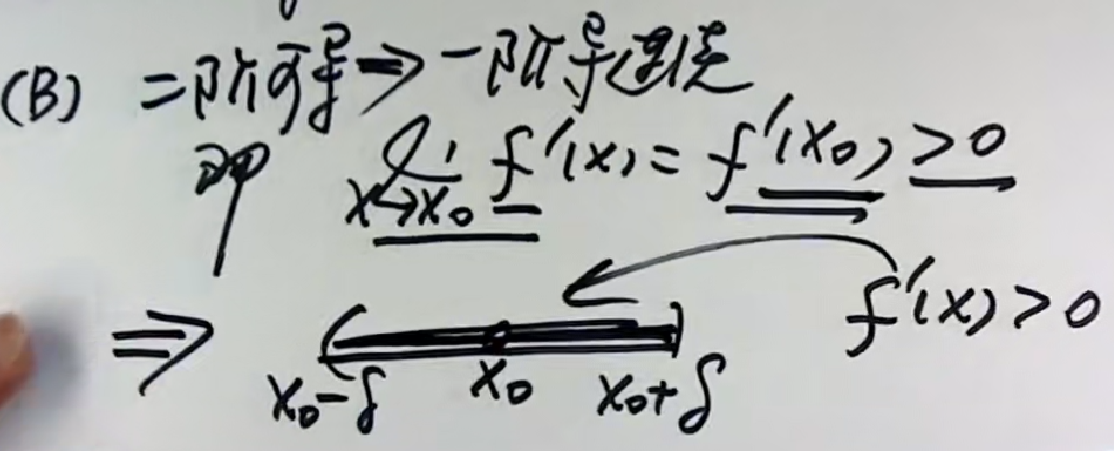 (B) 二阶可导⇒一阶导连续
即 lim x→x₀ f'(x) = f'(x₀) > 0
f'(x) > 0
⇒ x₀-δ x₀ x₀+δ